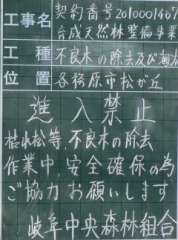 工事名 契約番号2010001467
育成天然林整備事業
工種 不良木の除去及び
位置 各務原市松が丘
進入禁止
枯小松等、不良木の除去
作業中、安全確保の為
ご協力お願いします
岐阜中央森林組合